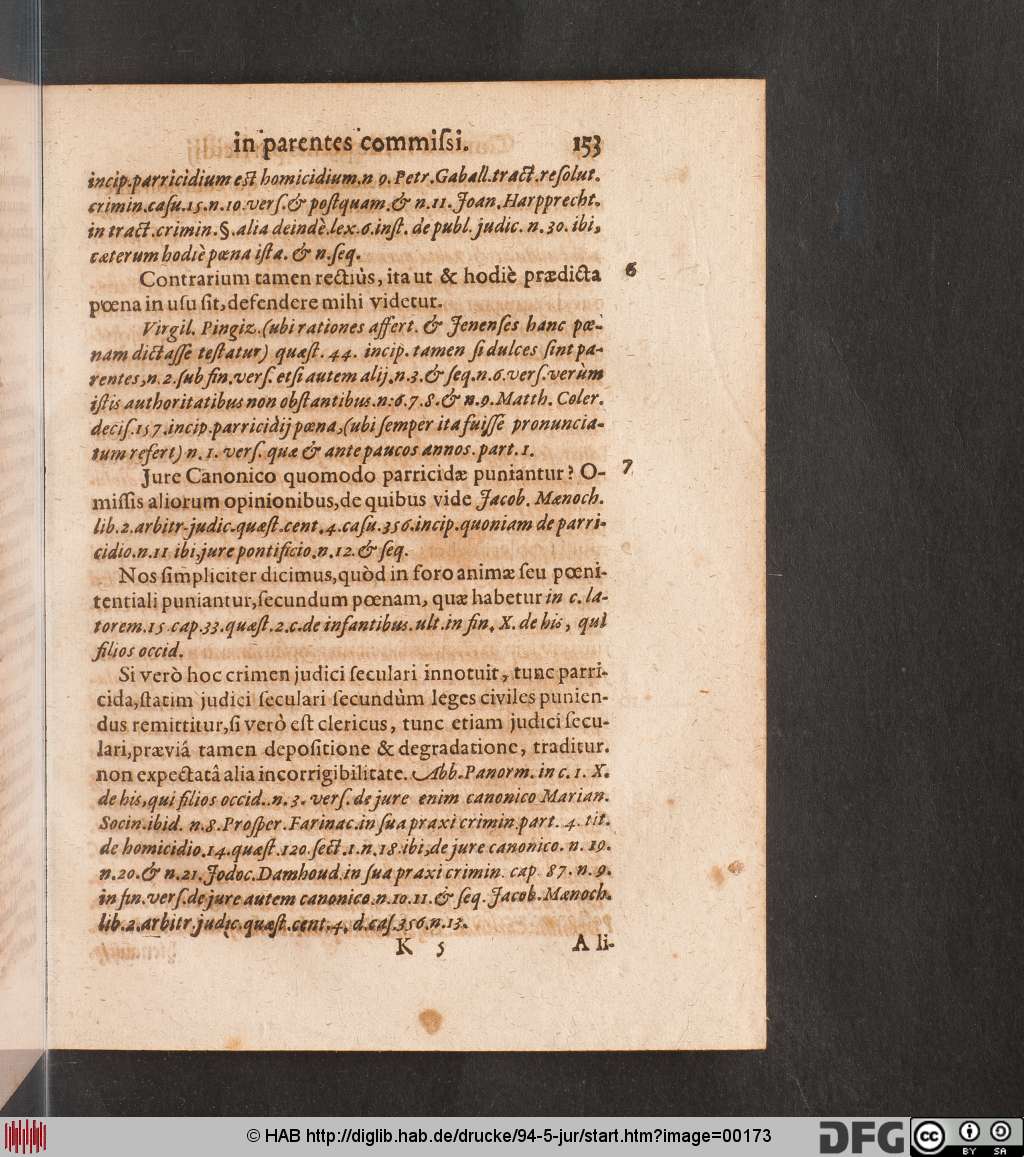 in parentes commiſsi. 153
incip.parricidium eſt homicidium.n 9. Petr.Gaball.tract.reſolut.
crimin.caſu.15.n.10.verſ.& poſtquam.& n.11. Joan.Harpprecht.
in tract.crimin.§.alia deindè.lex.6.inſt. de publ. judic. n. 30. ibi,
cæterum hodiè pœna iſta. & n.ſeq.
Contrarium tamen rectiùs, ita ut & hodiè prædicta 6
pœna in uſu ſit, defendere mihi videtur.
Virgil. Pingiz.(ubi rationes affert. & Jenenſes hanc pœ-
nam dictaſſe teſtatur) quæſt. 44. incip. tamen ſi dulces ſint pa-
rentes,n.2.ſub fin.verſ. etſi autem alij.n.3.& ſeq.n.6.verſ.verùm
iſtis authoritatibus non obſtantibus.n.6.7.8.& n.9.Matth. Coler.
deciſ.157.incip.parricidij pœna,(ubi ſemper ita fuiſſe pronuncia-
tum refert) n.1. verſ. quæ & ante paucos annos. part.1.
Jure Canonico quomodo parricidæ puniantur? O- 7
miſſis aliorum opinionibus,de quibus vide Jacob. Mænoch.
lib.2.arbitr.judic.quæſt.cent.4.caſu.356.incip.quoniam de parri-
cidio.n.11 ibi,jure pontificio.n.12.& ſeq.
Nos ſimpliciter dicimus,quòd in foro animæ ſeu pœni-
tentiali puniantur,ſecundum pœnam, quæ habetur in c. la-
torem.15 cap.33.quæſt.2.c.de infantibus.ult.in fin. X. de his, qui
filios occid.
Si verò hoc crimen judici ſeculari innotuit, tunc parri-
cida,ſtatim judici ſeculari ſecundùm leges civiles punien-
dus remittitur,ſi verò eſt clericus, tunc etiam judici ſecu-
lari,præviâ tamen depoſitione & degradatione, traditur.
non expectatâ alia incorrigibilitate. Abb.Panorm. in c. 1. X.
de his,qui filios occid..n.3. verſ. de jure enim canonico Marian.
Socin.ibid. n.8.Proſper.Farinac.in ſua praxi crimin.part. 4. tit.
de homicidio.14.quæſt.120.ſect.1.n.18.ibi,de jure canonico. n. 19.
n.20.& n.21.Jodoc.Damhoud.in ſua praxi crimin. cap. 87. n.9.
in fin.verſ.de jure autem canonico.n.10.11.& ſeq. Jacob.Mænoch.
lib.2.arbitr.judic.quæſt.cent.4. d.caſ.356.n.13.
K 5 A li-
© HAB http://diglib.hab.de/drucke/94-5-jur/start.htm?image=00173
DFG cc BY SA